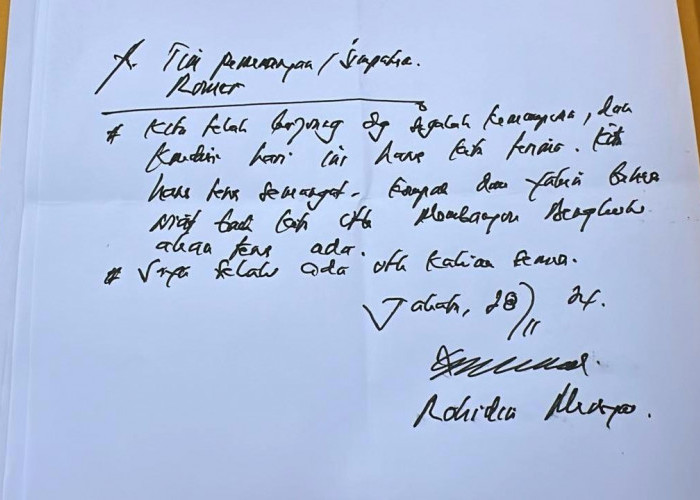 Tim pemenangan / Simpatisan
Romer
# Kita telah berjuang dg segalah kemampuan, dan
hari ini harus kita terima. Kita
harus terus semangat. Kompak dan yakin bahwa
Niat baik kita utk Membangun Bengkulu
akan terus ada.
# Saya selalu ada utk kalian semua.
Jakarta, 28/11 24.
Rohidin Mersyah.